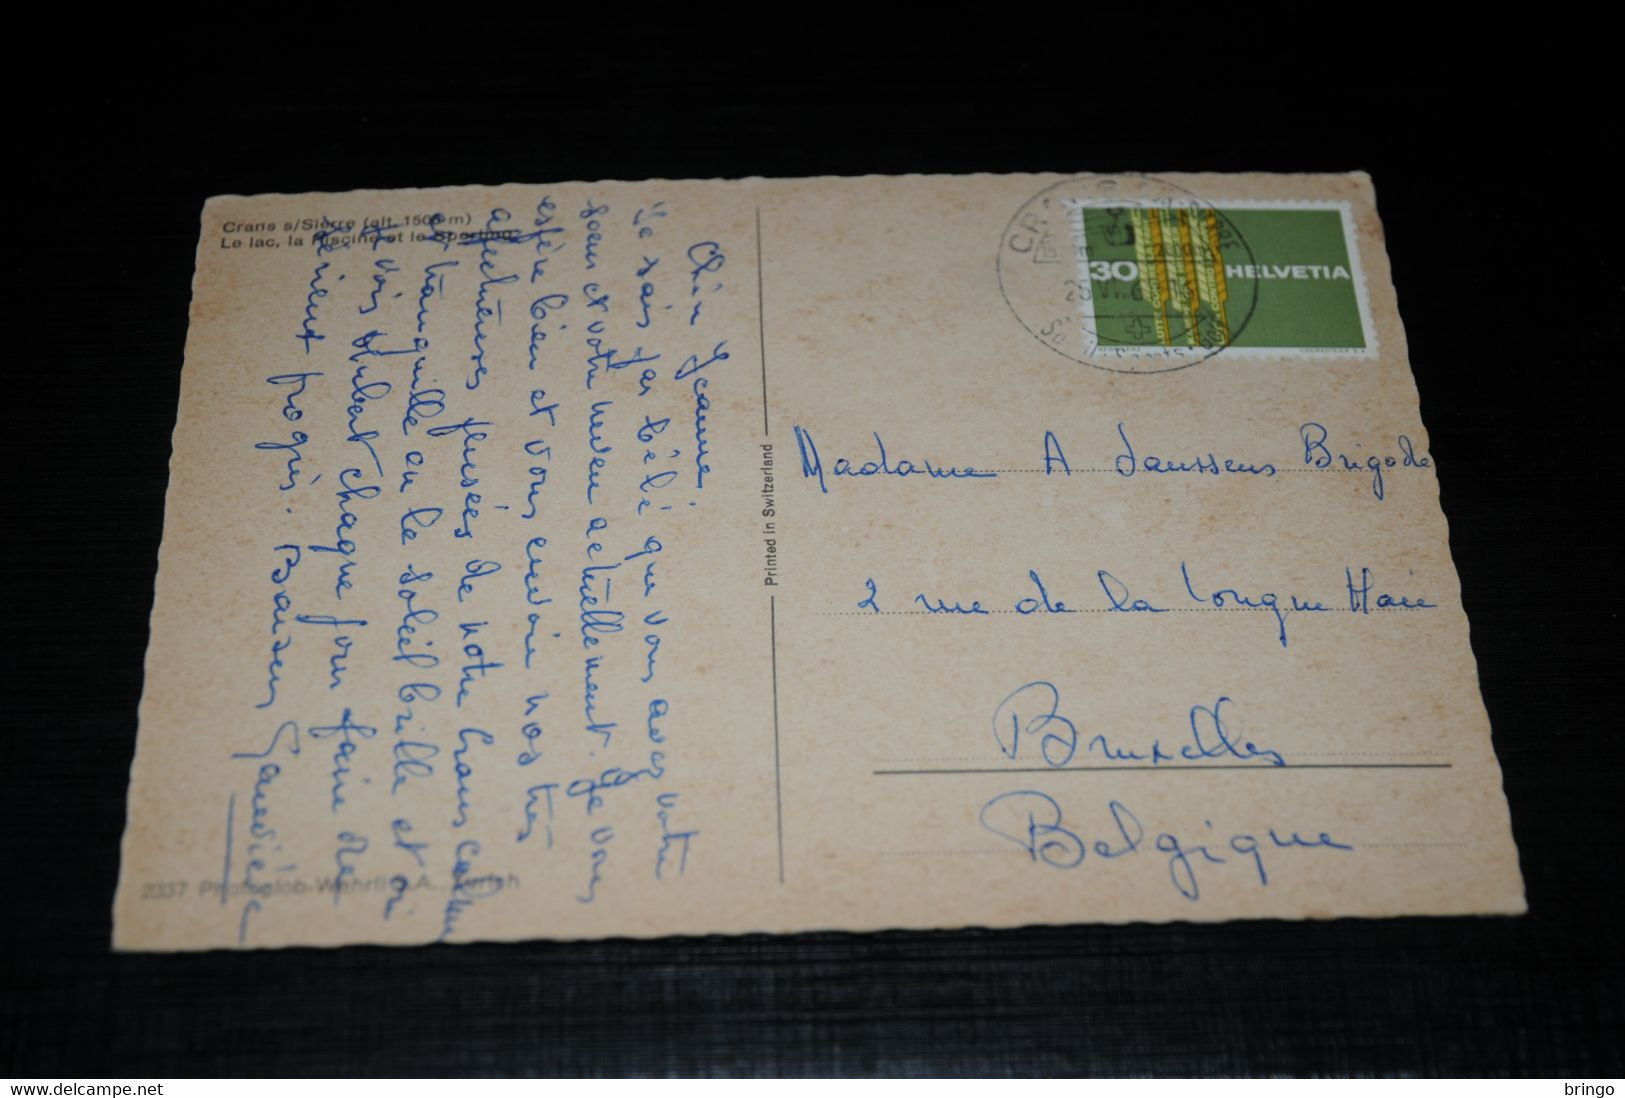 Crans s/Sierre (alt. 1500 m)
Le lac, la Piscine et le Sporting
Jeanne,
Je sais par bébé que vous avez votre
soeur et votre neveu actuellement. Je vous
espère bien et vous envoie nos très
affectueuses pensées de notre Crans calme
et tranquille où le soleil brille et où
je vois Hubert chaque jour faire de
sérieux progrès. Baisers
Geneviève
2337 Photoglob-Wehrli S.A., Zürich
Printed in Switzerland
30
HELVETIA
COURVOISIER S.A.
Madame A Janssens Brigode
2 rue de la Longue Haie
Bruxelles
Belgique
www.delcampe.net
bringo